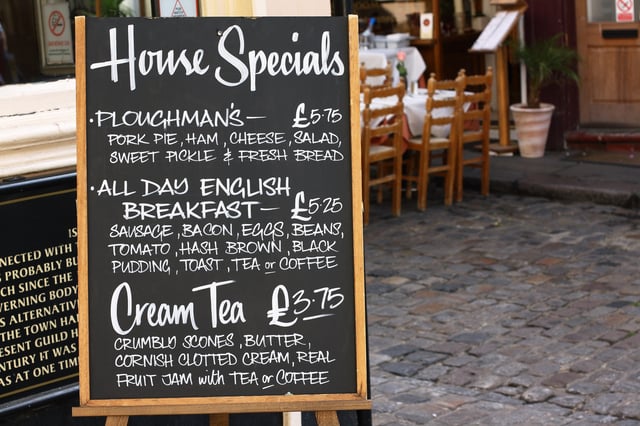 House Specials
·PLOUGHMAN'S — £5·75
PORK PIE, HAM, CHEESE, SALAD,
SWEET PICKLE & FRESH BREAD
·ALL DAY ENGLISH
BREAKFAST — £5·25
SAUSAGE, BACON, EGGS, BEANS,
TOMATO, HASH BROWN, BLACK
PUDDING, TOAST, TEA or COFFEE
Cream Tea £3·75
CRUMBLY SCONES, BUTTER,
CORNISH CLOTTED CREAM, REAL
FRUIT JAM with TEA or COFFEE
IS
NECTED WITH
PROBABLY BU
CH SINCE THE
VERNING BODY
S ALTERNATIV
THE TOWN HA
ESENT GUILD H
NTURY IT WAS
AS AT ONE TIM